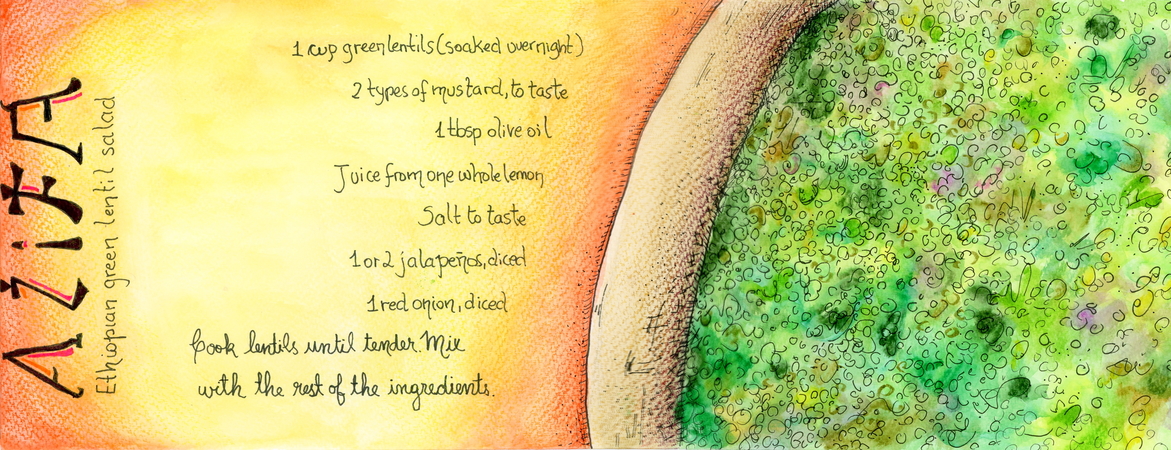 AZiFA
Ethiopian green lentil salad
1 cup green lentils (soaked overnight)
2 types of mustard, to taste
1 tbsp olive oil
Juice from one whole lemon
Salt to taste
1 or 2 jalapeños, diced
1 red onion, diced
Cook lentils until tender. Mix
with the rest of the ingredients.